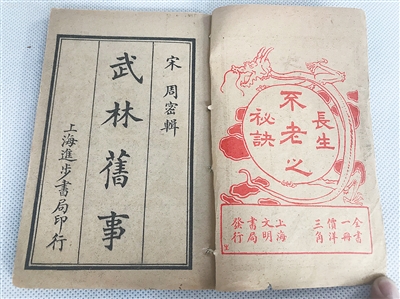 長生
不老之
祕訣
全書
一冊
價洋
三角
上海
文明
書局
發行
宋 周密輯
武林舊事
上海進步書局印行